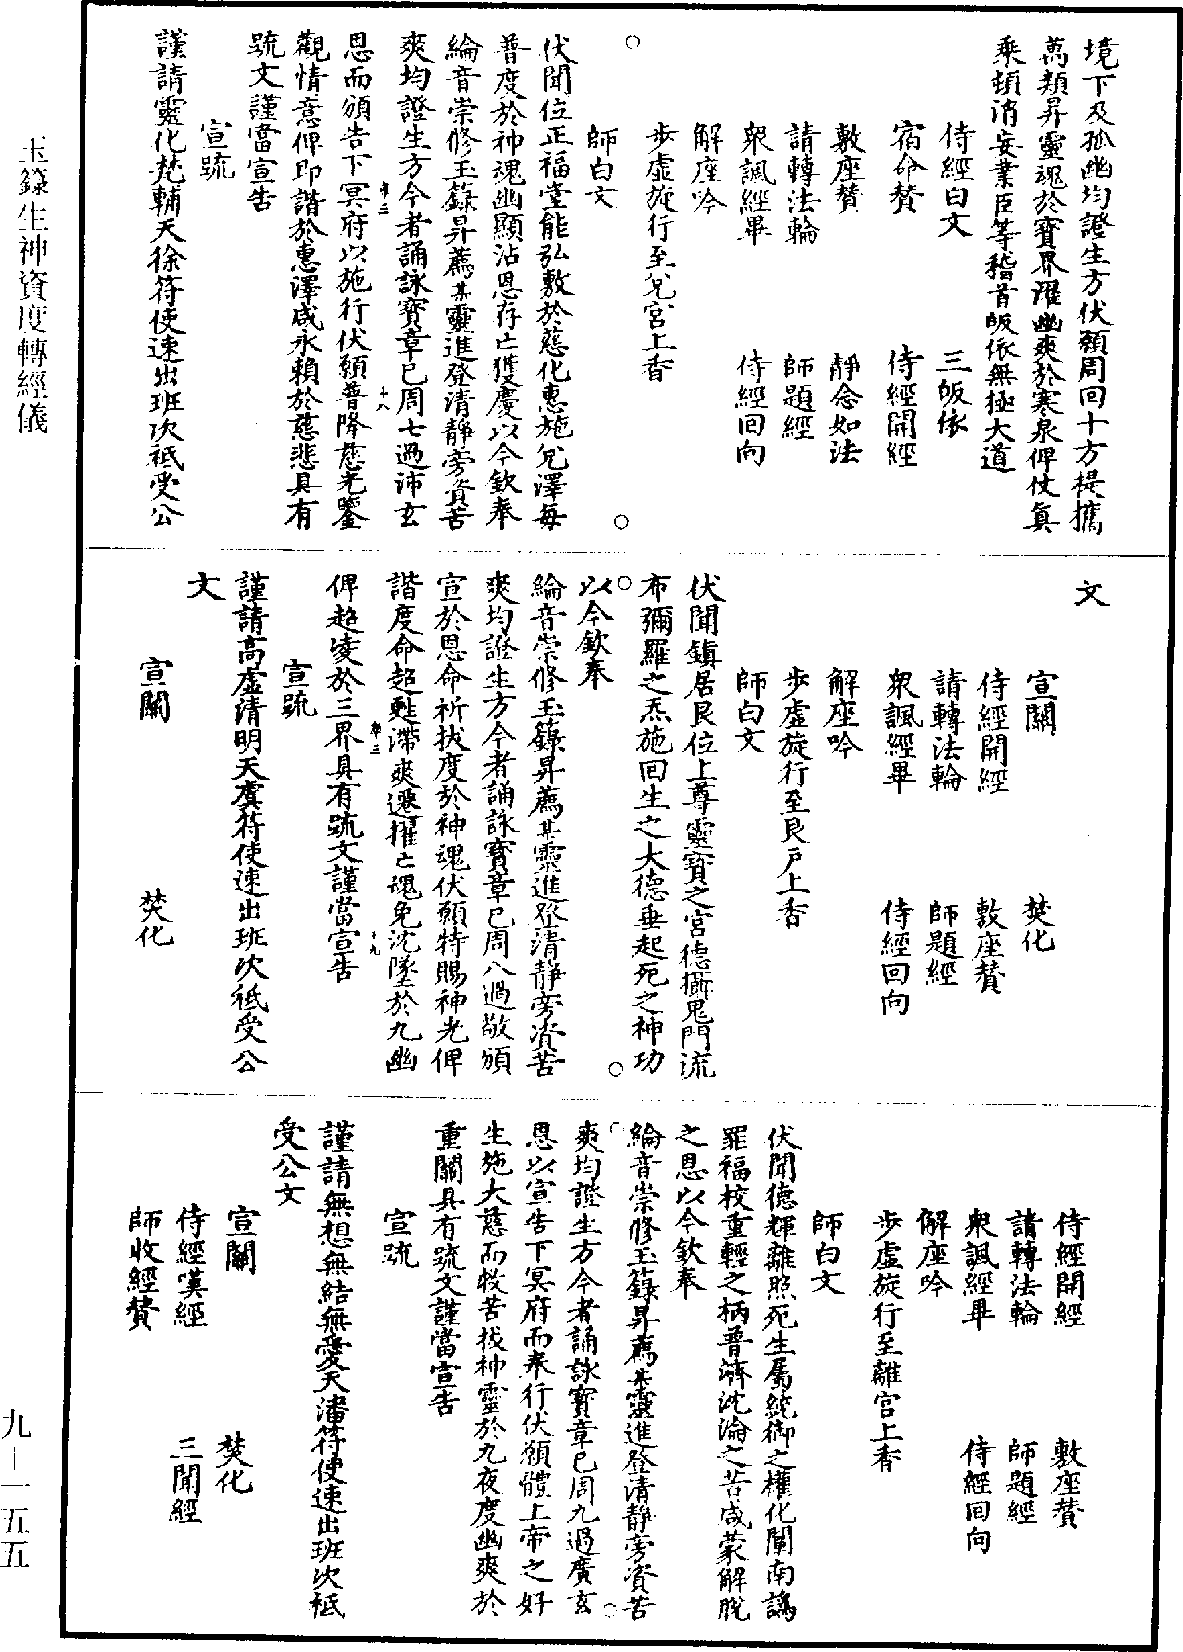 境下及孤幽均證生方伏願周回十方提攜
萬類昇靈魂於寶界濯幽爽於寒泉俾仗眞
乘頓消妄業臣等稽首皈依無極大道
侍經白文　三皈依
宿命贊　侍經開經
敷座贊　靜念如法
請轉法輪　師題經
衆諷經畢　侍經回向
解座吟
步虛旋行至兌宮上香
○　○
師白文
伏聞位正福堂能弘敷於慈化惠施兌澤每
普度於神魂幽顯沾恩存亡獲慶以今欽奉
綸音崇修玉籙昇薦某靈進登清靜旁資苦
爽均證生方今者誦詠寶章已周七過沛玄
恩而頒告下冥府以施行伏願普降慈光鑒
十八
觀情意俾即諧於惠澤咸永賴於慈悲具有
疏文謹當宣告
宣疏
謹請靈化梵輔天徐符使速出班次祗受公
文
宣關　焚化
侍經開經　敷座贊
請轉法輪　師題經
衆諷經畢　侍經回向
解座吟
步虛旋行至艮戶上香
師白文
伏聞鎮居艮位上尊靈寶之宮德攝鬼門流
布彌羅之炁施回生之大德垂起死之神功
○　○
以今欽奉
綸音崇修玉籙昇薦某靈進登清靜旁資苦
爽均證生方今者誦詠寶章已周八過敬頒
宣於恩命祈拔度於神魂伏願特賜神光俾
諧度命超甦滯爽遷擢亡魂免沈墜於九幽
十九
俾超凌於三界具有疏文謹當宣告
宣疏
謹請高虛清明天虞符使速出班次祗受公
文
宣關　焚化
侍經開經　敷座贊
請轉法輪　師題經
衆諷經畢　侍經回向
解座吟
步虛旋行至離宮上香
師白文
伏聞德輝離照死生屬統御之權化闡南譌
罪福校重輕之柄普濟沈淪之苦咸蒙解脫
之恩以今欽奉
○　○
綸音崇修玉籙昇薦某靈進登清靜旁資苦
爽均證生方今者誦詠寶章已周九過廣玄
恩以宣告下冥府而奉行伏願體上帝之好
生施大慈而救苦拔神靈於九夜度幽爽於
重關具有疏文謹當宣告
宣疏
謹請無想無結無愛天潘符使速出班次祗
受公文
宣關　焚化
侍經嘆經　三聞經
師收經贊
玉籙生神資度轉經儀
九—一五五